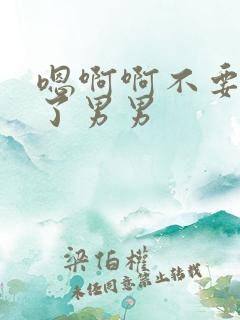 嗯啊啊不要
了男男
梁伯權
未经同意禁止转载